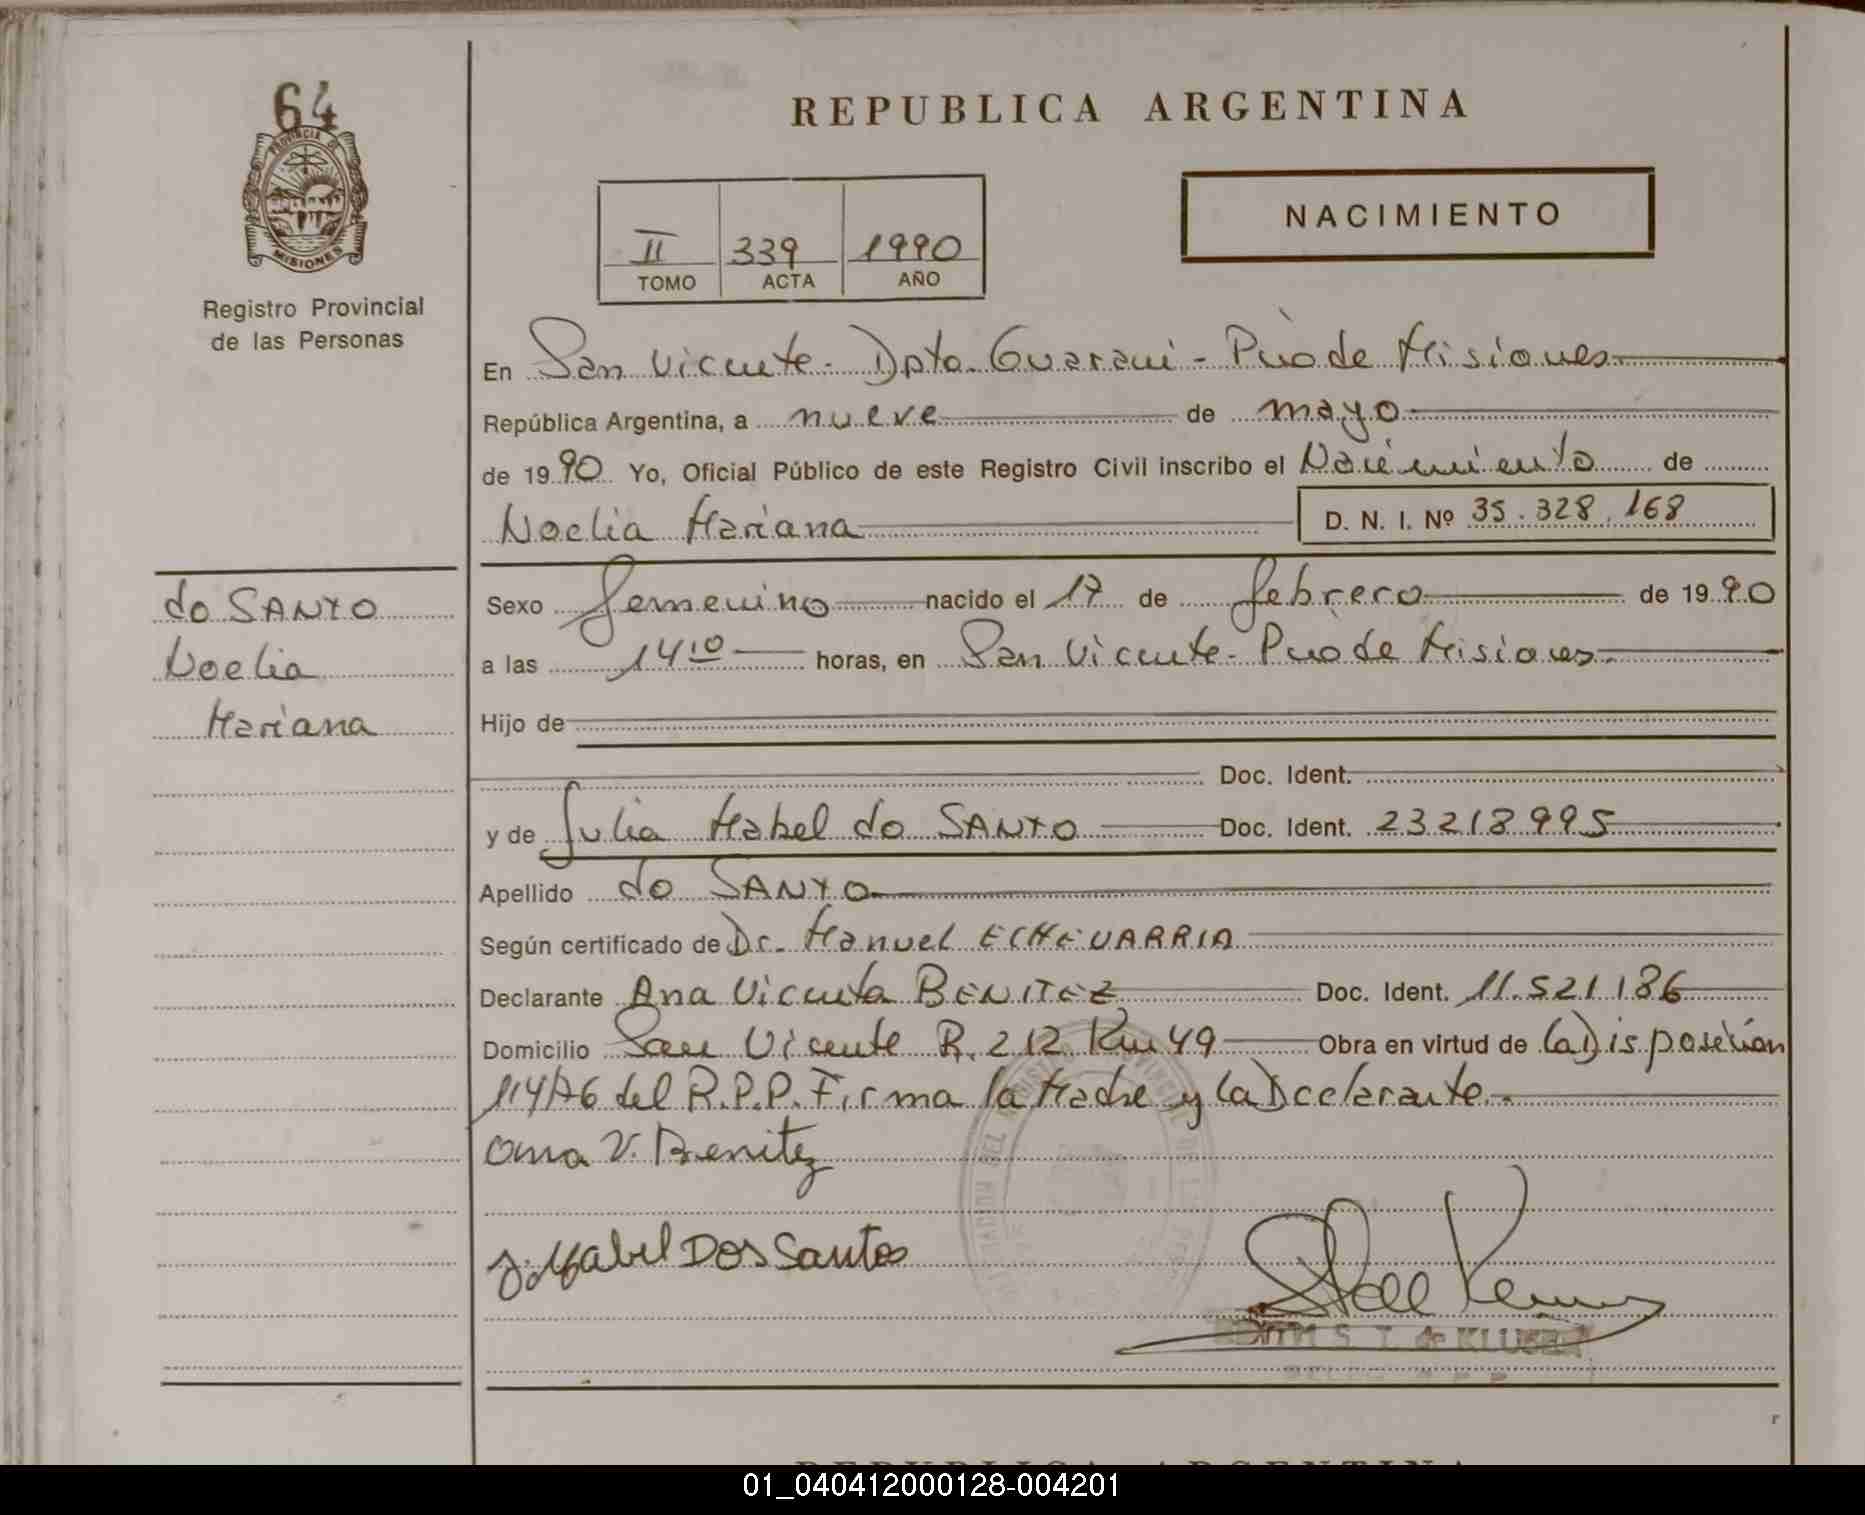 64
PROVINCIA DE
MISIONES
Registro Provincial
de las Personas
REPUBLICA ARGENTINA
NACIMIENTO
II 339 1990
TOMO ACTA AÑO
En San Vicente - Dpto. Guaraní - Pcia de Misiones
República Argentina, a nueve de mayo
de 1990 Yo, Oficial Público de este Registro Civil inscribo el Nacimiento de
Noelia Mariana D. N. I. Nº 35.328.168
do SANTO
Noelia
Mariana
Sexo femenino nacido el 17 de febrero de 1990
a las 14 10 horas, en San Vicente - Pcia de Misiones.
Hijo de
Doc. Ident.
y de Julia Mabel do SANTO Doc. Ident. 23218995
Apellido do SANTO
Según certificado de Dr. Manuel ECHEVARRIA
Declarante Ana Vicenta BENITEZ Doc. Ident. 11.521.186
Domicilio San Vicente R. 212 Km 49 Obra en virtud de la Disposición
114/76 del R.P.P. Firma la Madre y la Declarante.-
Ana V. Benitez
J. Mabel Dos Santos
REPUBLICA ARGENTINA
01_040412000128-004201